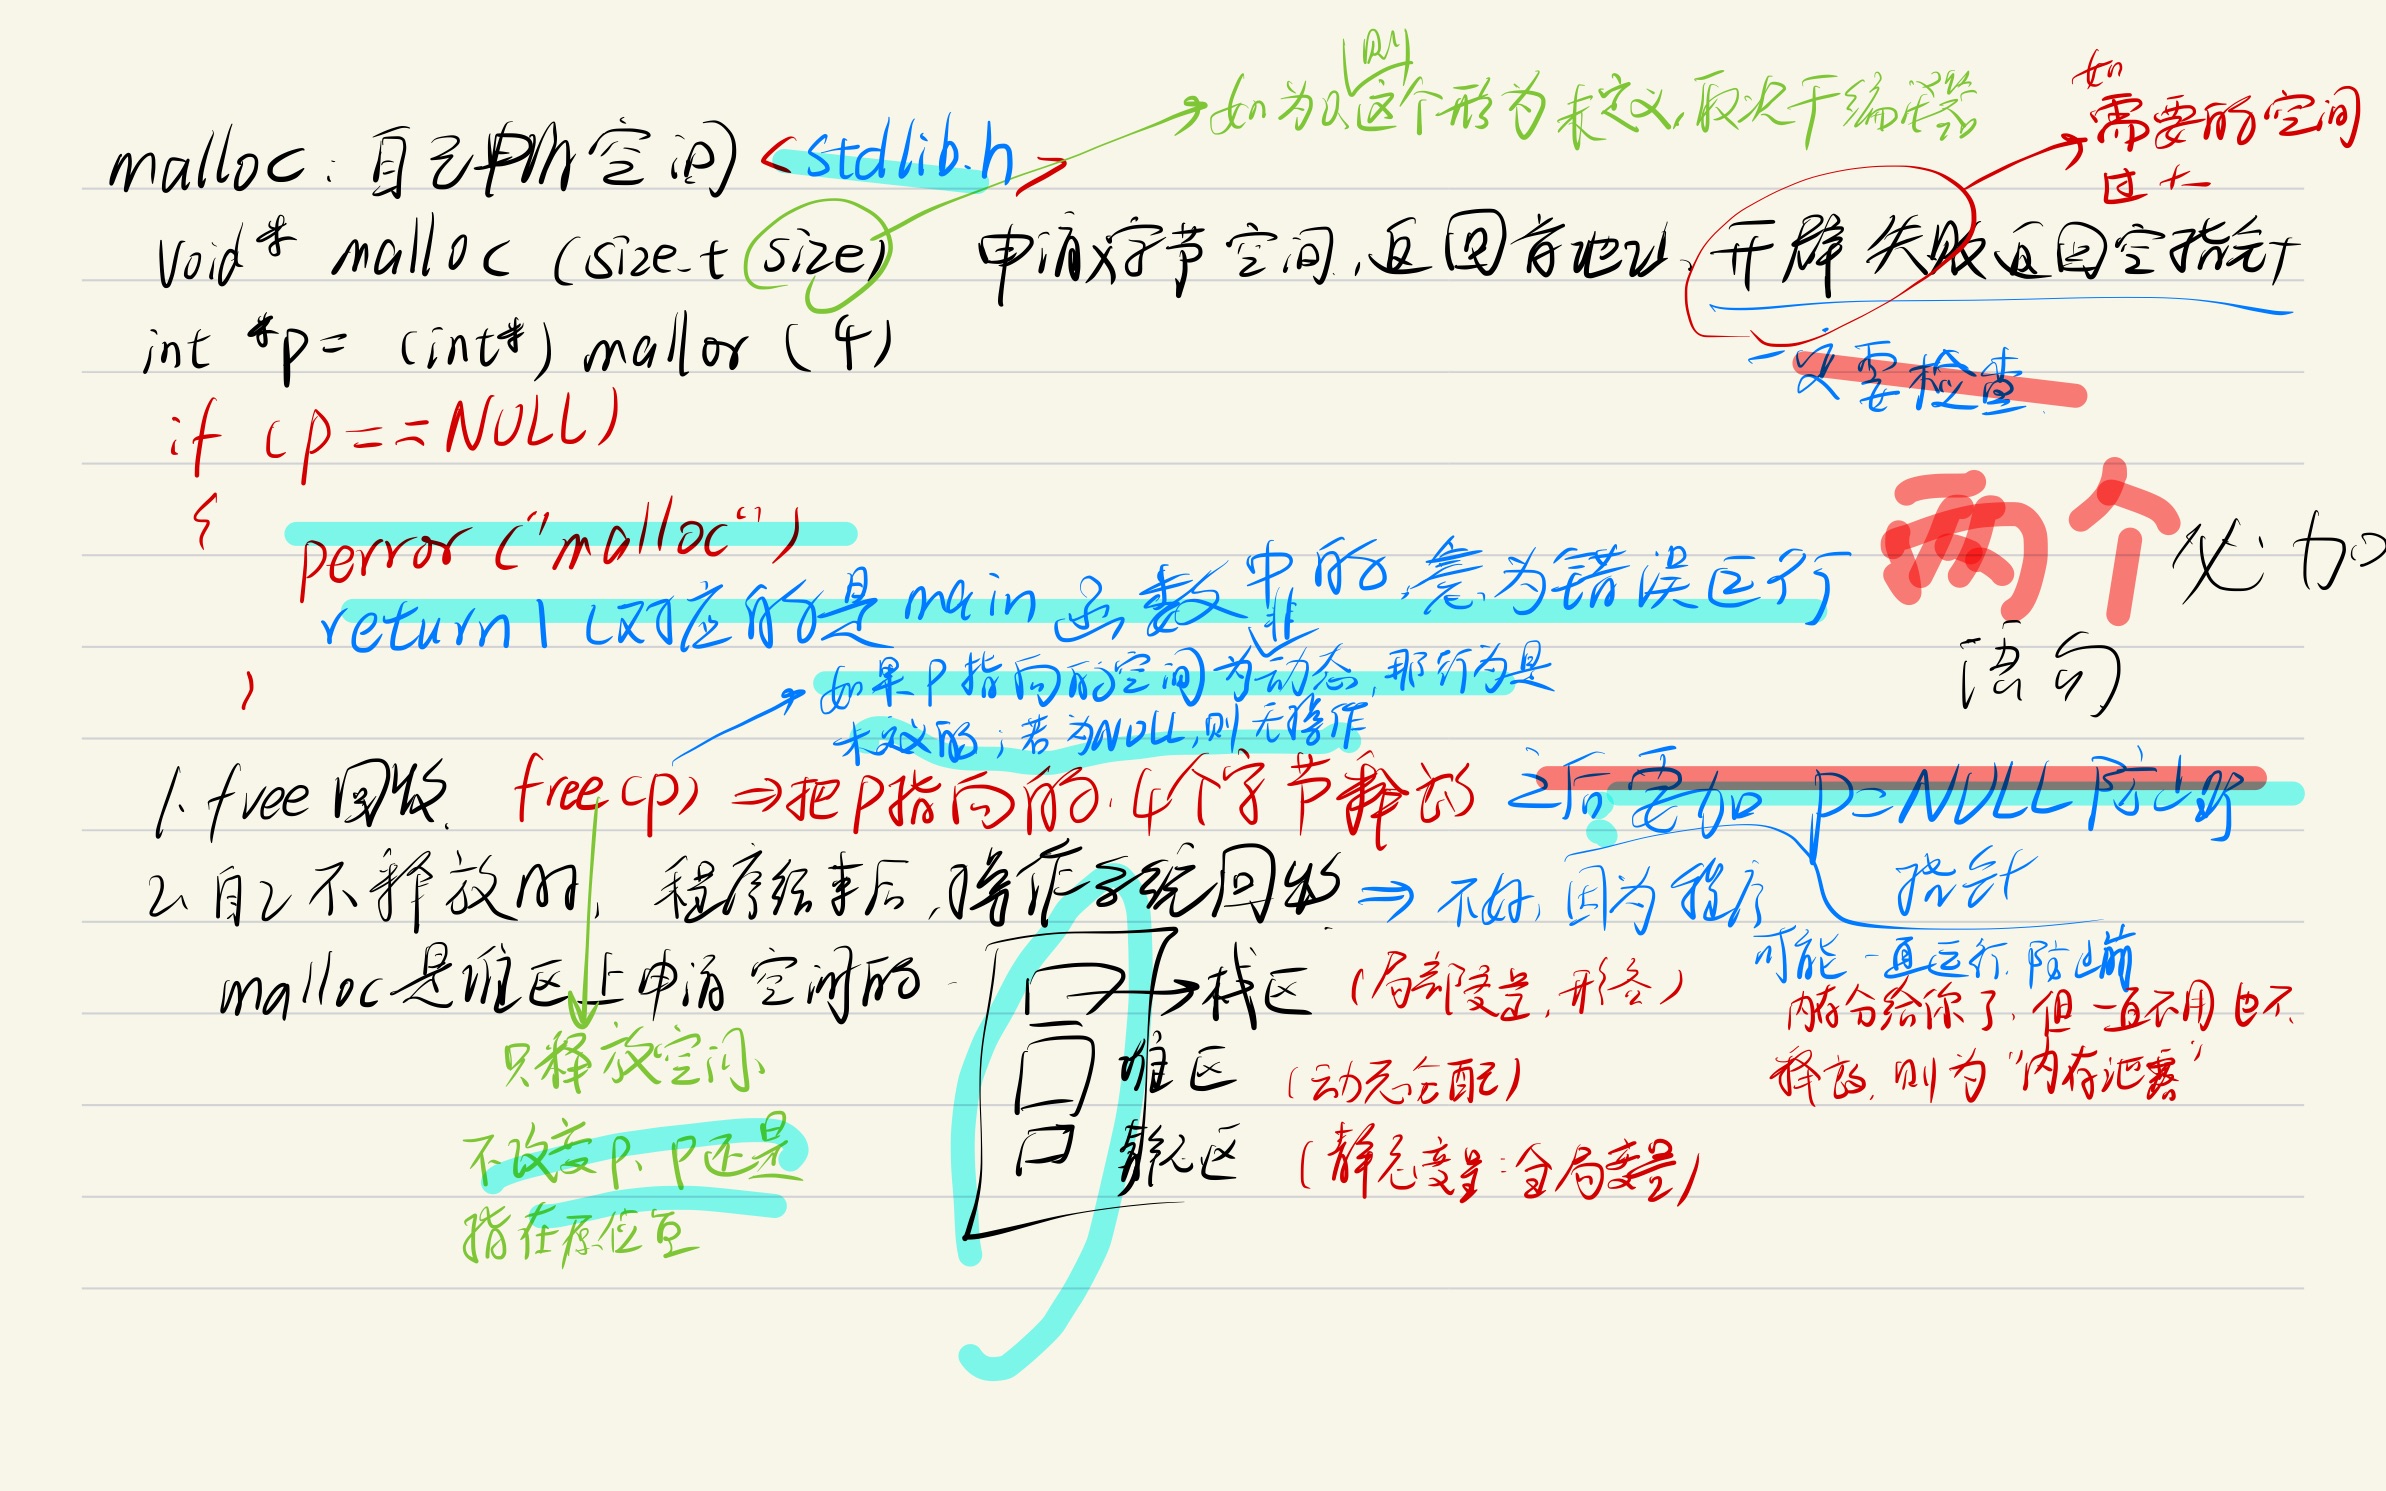 则
如为0,这个形为未定义,取决于编译器
如
需要的空间
过大
malloc:自己申请空间<stdlib.h>
void* malloc (size_t size) 申请x字节空间,返回首地址,开辟失败返回空指针
一定要检查
int *p= (int*) malloc (4)
if (p==NULL)
{
perror("malloc")
两个必加
语句
return 1 (对应的是main函数中的,意为错误运行
非
如果P指向的空间为动态,那行为是
未定义的;若为NULL,则无操作
}
1.free回收. free(p) ⇒把P指向的.4个字节释放 之后需要加 p=NULL 防止野
指针
2.自己不释放时, 程序结束后,将作系统回收 ⇒ 不好,因为程序
可能一直运行.防止崩
malloc是堆区上申请空间的
栈区 (局部变量,形参)
堆区 (动态分配)
静态区 (静态变量:全局变量)
内存分给你了,但一直不用也不
释放,则为"内存泄露"
只释放空间、
不改变p、p还是
指在原位置